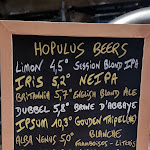 HOPULUS BEERS
LIMON 4,5° SESSION BLOND IPA
IRIS 5,2° NEIPA
BRITANNIA 5,7° ENGLISH BLOND ALE
DUBBEL 5,8° BRUNE D'ABBAYE
IPSUM 10,3° GOUDEN TRIPEL
ALBA VENUS 5,0° BLANCHE
FRAMBOISES - LITCHIS